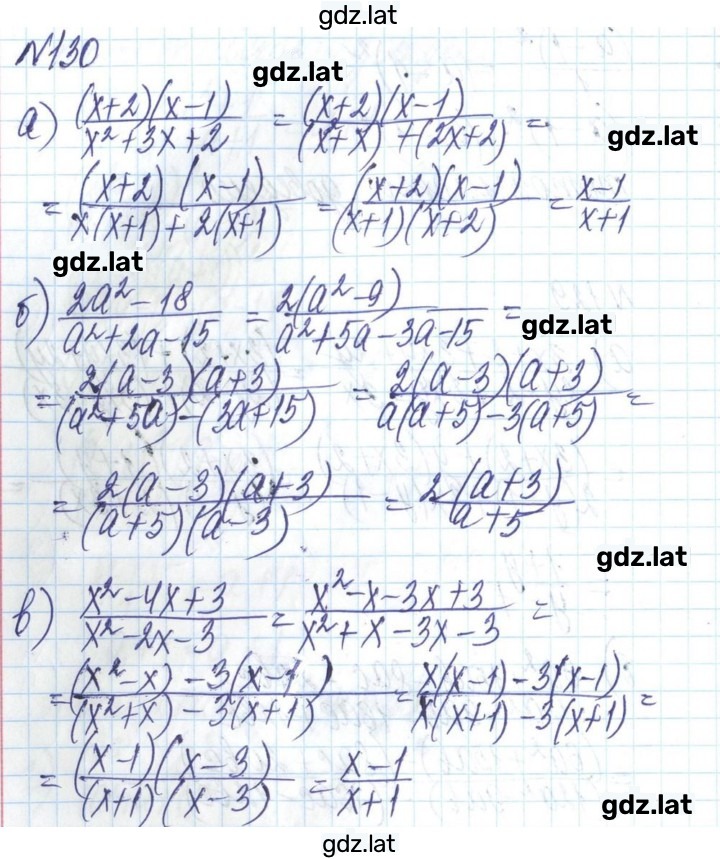 gdz.lat
№130
gdz.lat
а) (x+2)(x-1) / x²+3x+2 = (x+2)(x-1) / (x+x) + (2x+2) =
gdz.lat
= (x+2)(x-1) / x(x+1) + 2(x+1) = (x+2)(x-1) / (x+1)(x+2) = x-1 / x+1
gdz.lat
б) 2a²-18 / a²+2a-15 = 2(a²-9) / a²+5a-3a-15 =
gdz.lat
= 2(a-3)(a+3) / (a²+5a)-(3a+15) = 2(a-3)(a+3) / a(a+5)-3(a+5) =
= 2(a-3)(a+3) / (a+5)(a-3) = 2(a+3) / a+5
gdz.lat
в) x²-4x+3 / x²-2x-3 = x²-x-3x+3 / x²+x-3x-3 =
= (x²-x)-3(x-1) / (x²+x)-3(x+1) = x(x-1)-3(x-1) / x(x+1)-3(x+1) =
= (x-1)(x-3) / (x+1)(x-3) = x-1 / x+1
gdz.lat
gdz.lat